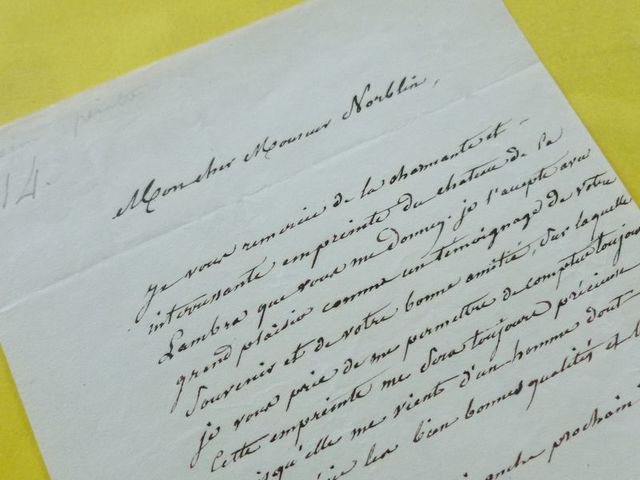 peintre
14.
Mon cher Monsieur Norblin,
Je vous remercie de la charmante et
interressante empreinte du chateau de la
Lambra que vous me donnez. je l'accepte avec
grand plaisir comme un témoignage de votre
Souvenir et de votre bonne amitié, Sur laquelle
je vous prie de me permettre de compter toujours
Cette empreinte me Sera toujours précieuse
qu'elle me vient d'un homme dont
les bien bonnes qualités et l
prochain